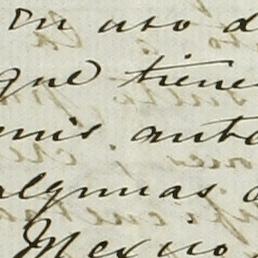 En uso d
que tiene
mis ante
algunas
Mexico